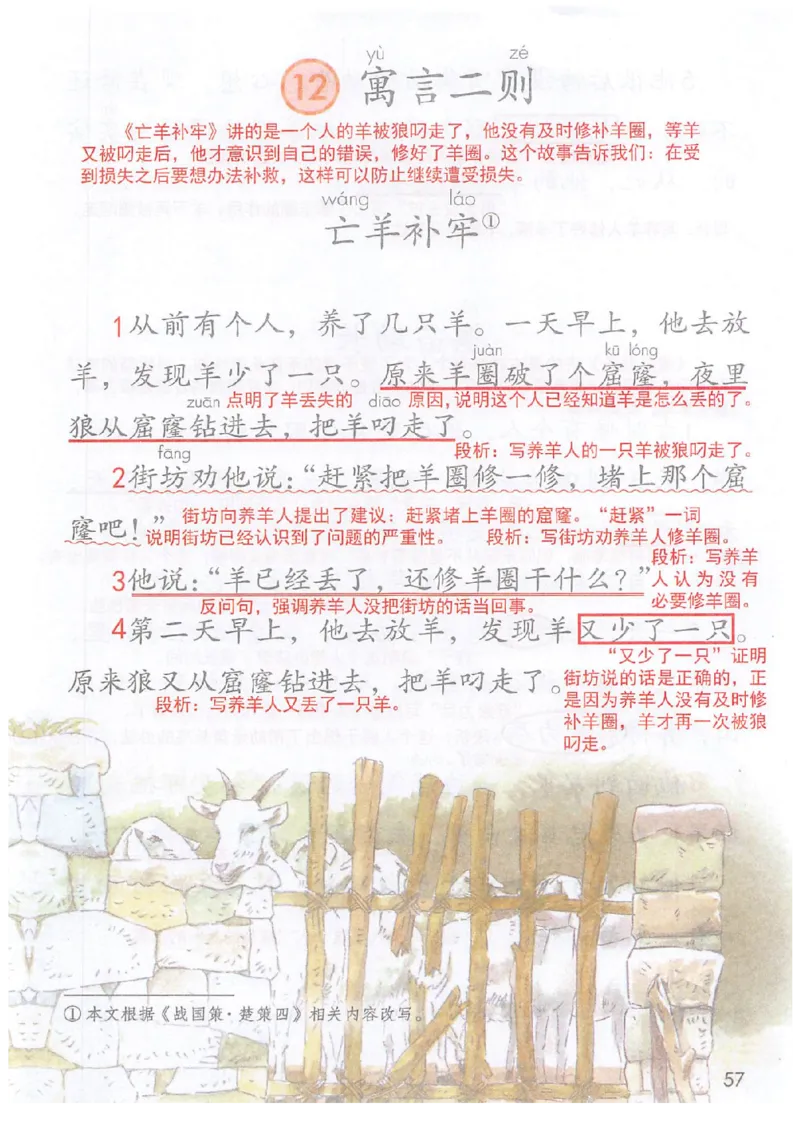 yù zé
12 寓言二则
《亡羊补牢》讲的是一个人的羊被狼叼走了，他没有及时修补羊圈，等羊
又被叼走后，他才意识到自己的错误，修好了羊圈。这个故事告诉我们：在受
到损失之后要想办法补救，这样可以防止继续遭受损失。
wáng láo
亡羊补牢①
1从前有个人，养了几只羊。一天早上，他去放
juàn kū lóng
羊，发现羊少了一只。原来羊圈破了个窟窿，夜里
zuān 点明了羊丢失的 diāo 原因，说明这个人已经知道羊是怎么丢的了。
狼从窟窿钻进去，把羊叼走了。
段析：写养羊人的一只羊被狼叼走了。
fāng
2街坊劝他说：“赶紧把羊圈修一修，堵上那个窟
窿吧！”
街坊向养羊人提出了建议：赶紧堵上羊圈的窟窿。“赶紧”一词
说明街坊已经认识到了问题的严重性。 段析：写街坊劝养羊人修羊圈。
3他说：“羊已经丢了，还修羊圈干什么？”
段析：写养羊
人认为没有
必要修羊圈。
反问句，强调养羊人没把街坊的话当回事。
4第二天早上，他去放羊，发现羊又少了一只。
原来狼又从窟窿钻进去，把羊叼走了。
“又少了一只”证明
街坊说的话是正确的，正
是因为养羊人没有及时修
补羊圈，羊才再一次被狼
叼走。
段析：写养羊人又丢了一只羊。
①本文根据《战国策·楚策四》相关内容改写。
57